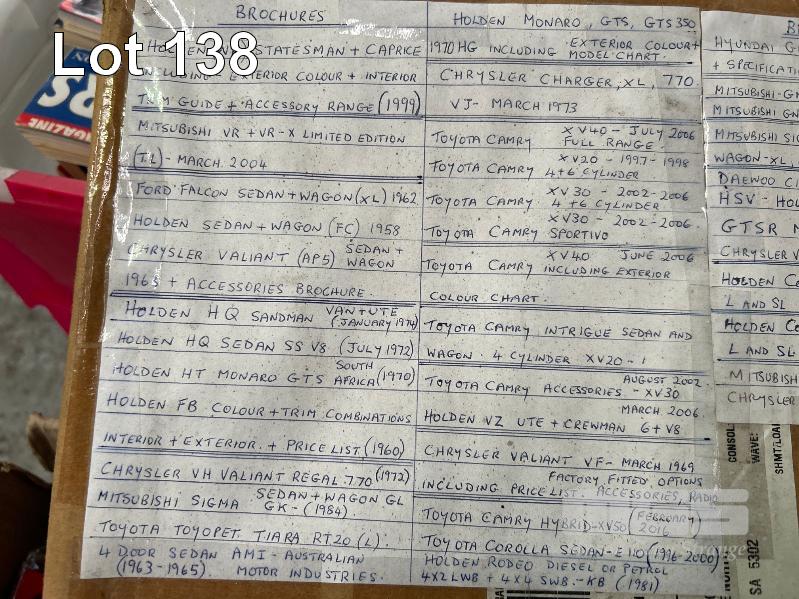 Lot 138
BROCHURES
STATESMAN + CAPRICE
INCLUDING EXTERIOR COLOUR + INTERIOR
TRIM GUIDE + ACCESSORY RANGE (1999)
MITSUBISHI VR + VR-X LIMITED EDITION
(TL) - MARCH 2004
FORD FALCON SEDAN + WAGON (XL) 1962
HOLDEN SEDAN + WAGON (FC) 1958
CHRYSLER VALIANT (AP5) SEDAN + WAGON
1963 + ACCESSORIES BROCHURE
HOLDEN HQ SANDMAN VAN + UTE (JANUARY 1974)
HOLDEN HQ SEDAN SS V8 (JULY 1972)
HOLDEN HT MONARO GTS SOUTH AFRICA (1970)
HOLDEN FB COLOUR + TRIM COMBINATIONS
INTERIOR + EXTERIOR + PRICE LIST (1960)
CHRYSLER VH VALIANT REGAL 770 (1972)
MITSUBISHI SIGMA SEDAN + WAGON GL GK - (1984)
TOYOTA TOYOPET TIARA RT20 (L)
4 DOOR SEDAN AMI - AUSTRALIAN
(1963-1965). MOTOR INDUSTRIES.
HOLDEN MONARO, GTS, GTS 350
1970 HG INCLUDING EXTERIOR COLOUR + MODEL CHART.
CHRYSLER CHARGER, XL, 770
VJ - MARCH 1973
TOYOTA CAMRY XV40 - JULY 2006 FULL RANGE
TOYOTA CAMRY XV20 - 1997-1998 4+6 CYLINDER
TOYOTA CAMRY XV30 - 2002-2006 4+6 CYLINDER
TOYOTA CAMRY XV30 - 2002-2006 SPORTIVO
TOYOTA CAMRY XV40 JUNE 2006 INCLUDING EXTERIOR
COLOUR CHART.
TOYOTA CAMRY INTRIGUE SEDAN AND
WAGON. 4 CYLINDER XV20 - 1
TOYOTA CAMRY ACCESSORIES - XV30 AUGUST 2002
HOLDEN VZ UTE + CREWMAN 6+V8 MARCH 2006
CHRYSLER VALIANT VF - MARCH 1969
INCLUDING PRICE LIST. FACTORY FITTED OPTIONS ACCESSORIES, RADIO
TOYOTA CAMRY HYBRID - XV50 (FEBRUARY 2016
TOYOTA COROLLA SEDAN - E110 (1996-2000)
HOLDEN RODEO DIESEL OR PETROL
4X2 LWB + 4X4 SWB. - KB (1981)
HYUNDAI G
+ SPECIFICATI
MITSUBISHI - G
MITSUBISHI GN
MITSUBISHI SIG
WAGON - XL,
DAEWOO CI
HSV - HOL
GTSR M
CHRYSLER V
HOLDEN CO
L AND SL
HOLDEN CO
L AND SL
MITSUBISH
CHRYSLER
CONSOL
WAVE:
SHMT/LOA
SA 5302
AGAZINE